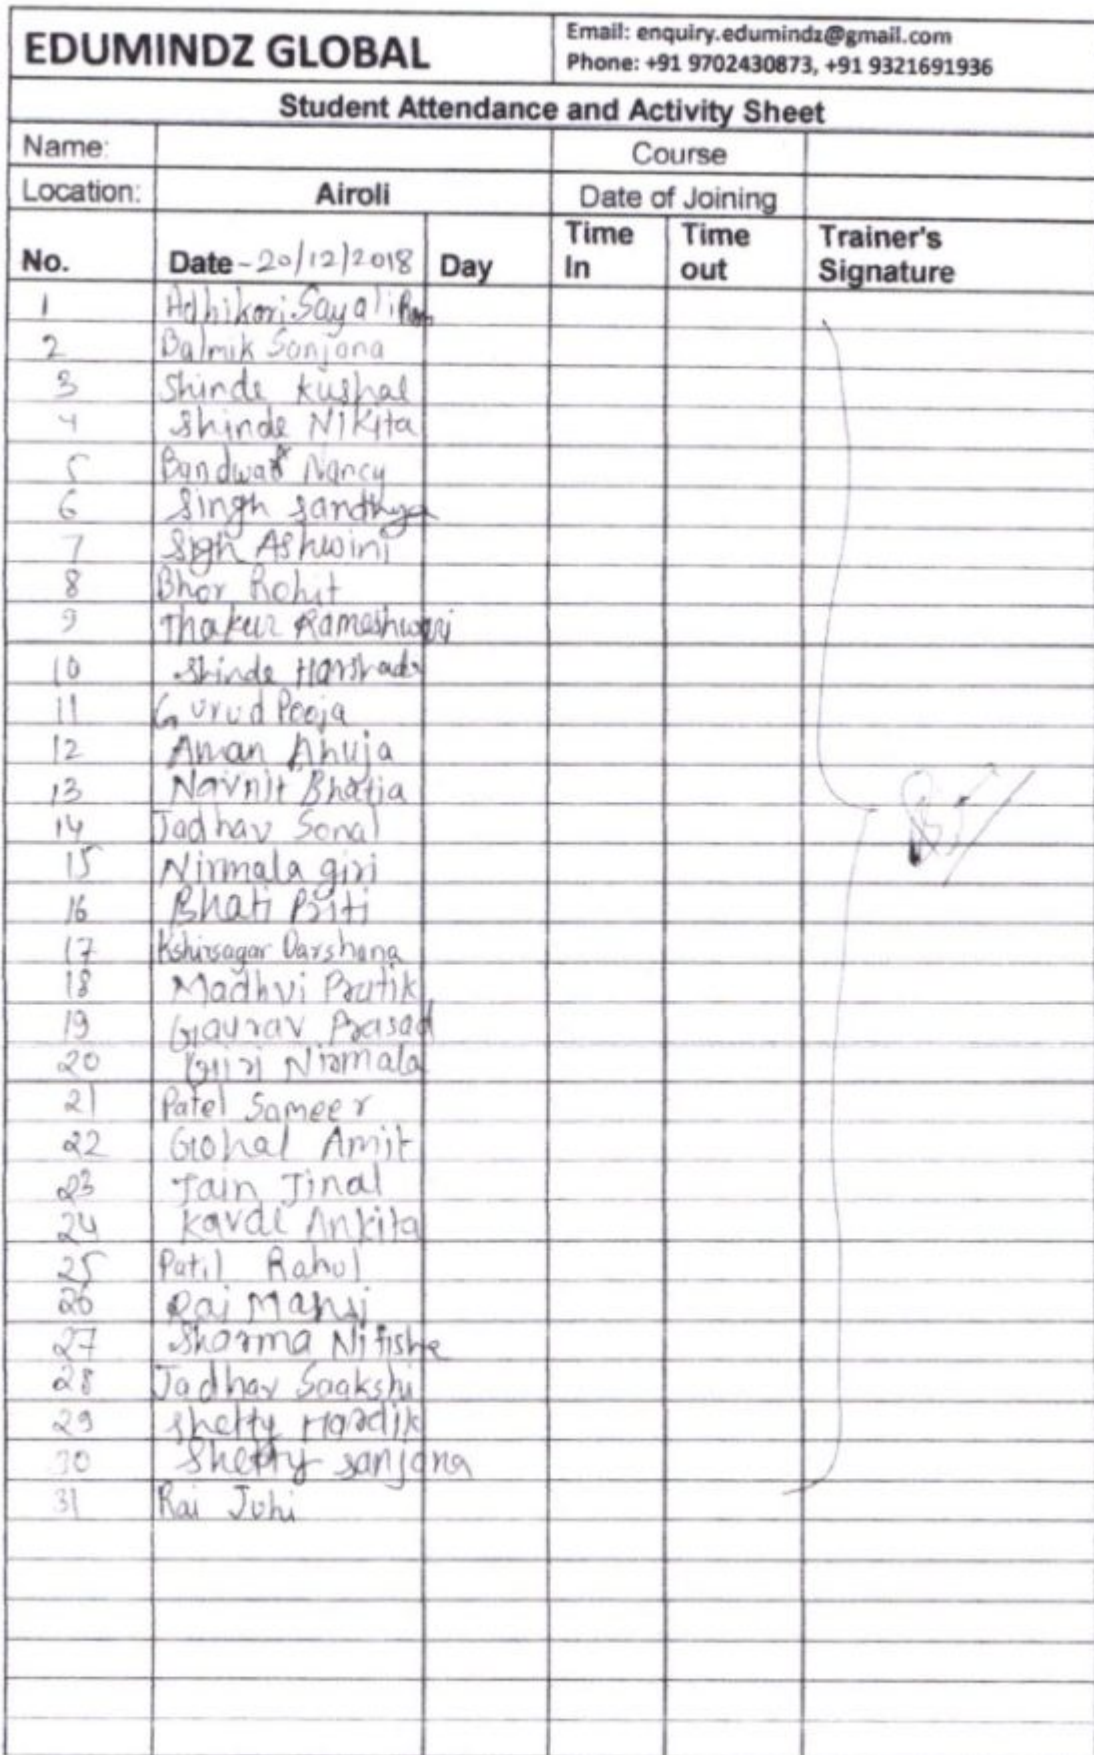 EDUMINDZ GLOBAL
Email: enquiry.edumindz@gmail.com
Phone: +91 9702430873, +91 9321691936
Student Attendance and Activity Sheet
Name: Course
Location: Airoli Date of Joining
No. Date - 20/12/2018 Day Time In Time out Trainer's Signature
1 Adhikari Sayali
2 Balmik Sanjana
3 Shinde Kushal
4 Shinde Nikita
5 Nancy
6 Singh Sandhya
7 Sigh Ashwini
8 Bhor Rohit
9 Thakur Rameshwari
10 Shinde Harshada
11 Gurud Pooja
12 Aman Ahuja
13 Navnit Bhatia
14 Jadhav Sonal
15 Nirmala giri
16 Bhati Priti
17 Kshirsagar Darshana
18 Madhvi Pratik
19 Gaurav Prasad
20 Giri Nirmala
21 Patel Sameer
22 Gohal Amit
23 Jain Jinal
24 Kavde Ankita
25 Patil Rahul
26 Rai Mansi
27 Sharma Nitishe
28 Jadhav Saakshi
29 Shetty Hardik
30 Shetty Sanjana
31 Rai Juhi